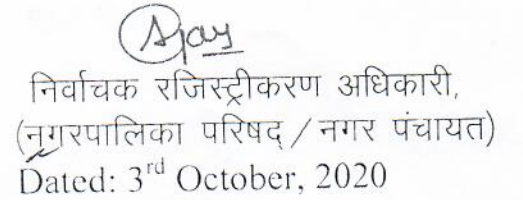 Ajay
निर्वाचक रजिस्ट्रीकरण अधिकारी,
(नगरपालिका परिषद / नगर पंचायत)
Dated: 3rd October, 2020